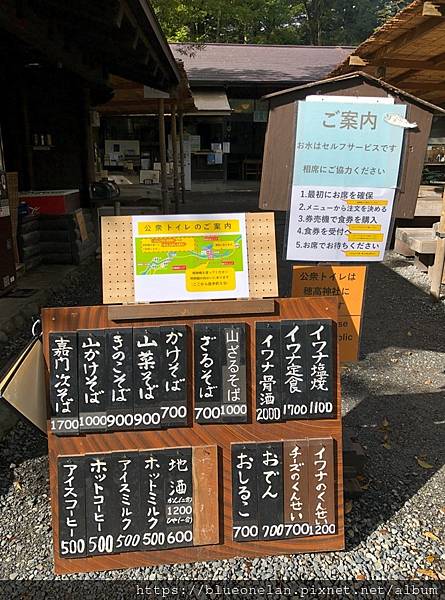 ご案内
お水はセルフサービスです
相席にご協力ください
1.最初にお席を確保
2.メニューから注文を決める
3.券売機で食券を購入
4.食券を受付へ
5.お席でお待ちください
公衆トイレのご案内
公衆トイレは
穂高神社に
嘉門次そば 1700
山かけそば 1000
きのこそば 900
山菜そば 900
かけそば 700
ざるそば 700
山ざるそば 1000
イワナ骨酒 2000
イワナ定食 1700
イワナ塩焼 1100
アイスコーヒー 500
ホットコーヒー 500
アイスミルク 500
ホットミルク 500
地酒
1200
600
おしるこ 700
おでん 700
チーズのくんせい 700
イワナのくんせい 1200
https://blueonelan.pixnet.net/album